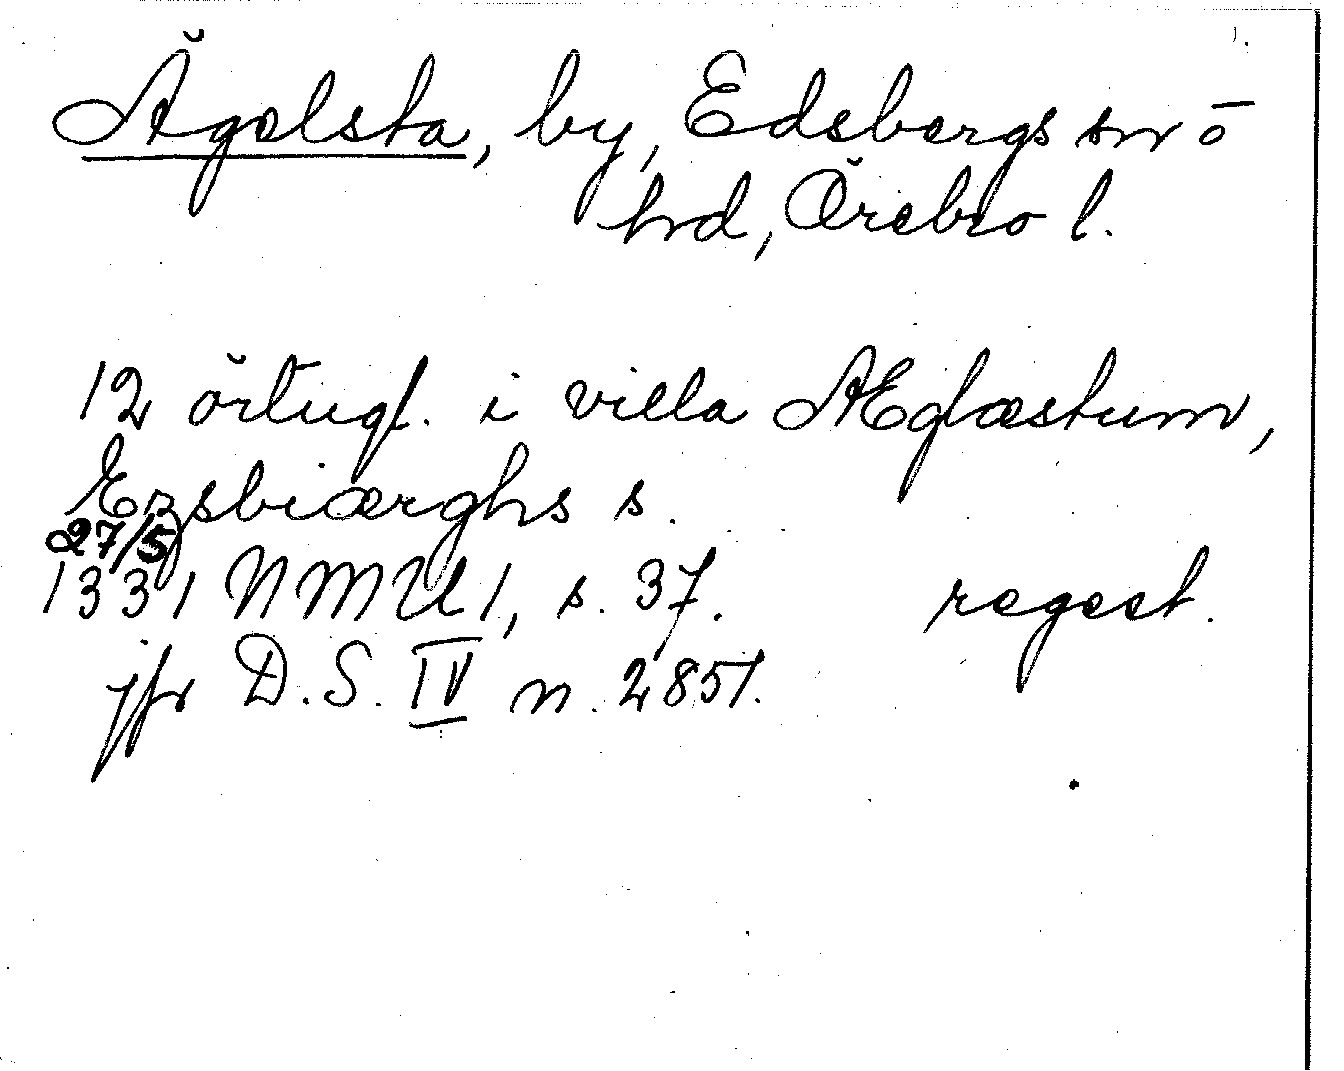 Ägelsta, by, Edsbergs sn o
hd, Örebro l.
12 örtugl. i villa Æglæstum,
Ezsbiærghs s.
27/5
1331 NMU 1, s. 37. regest.
jfr D.S. IV n. 2851.